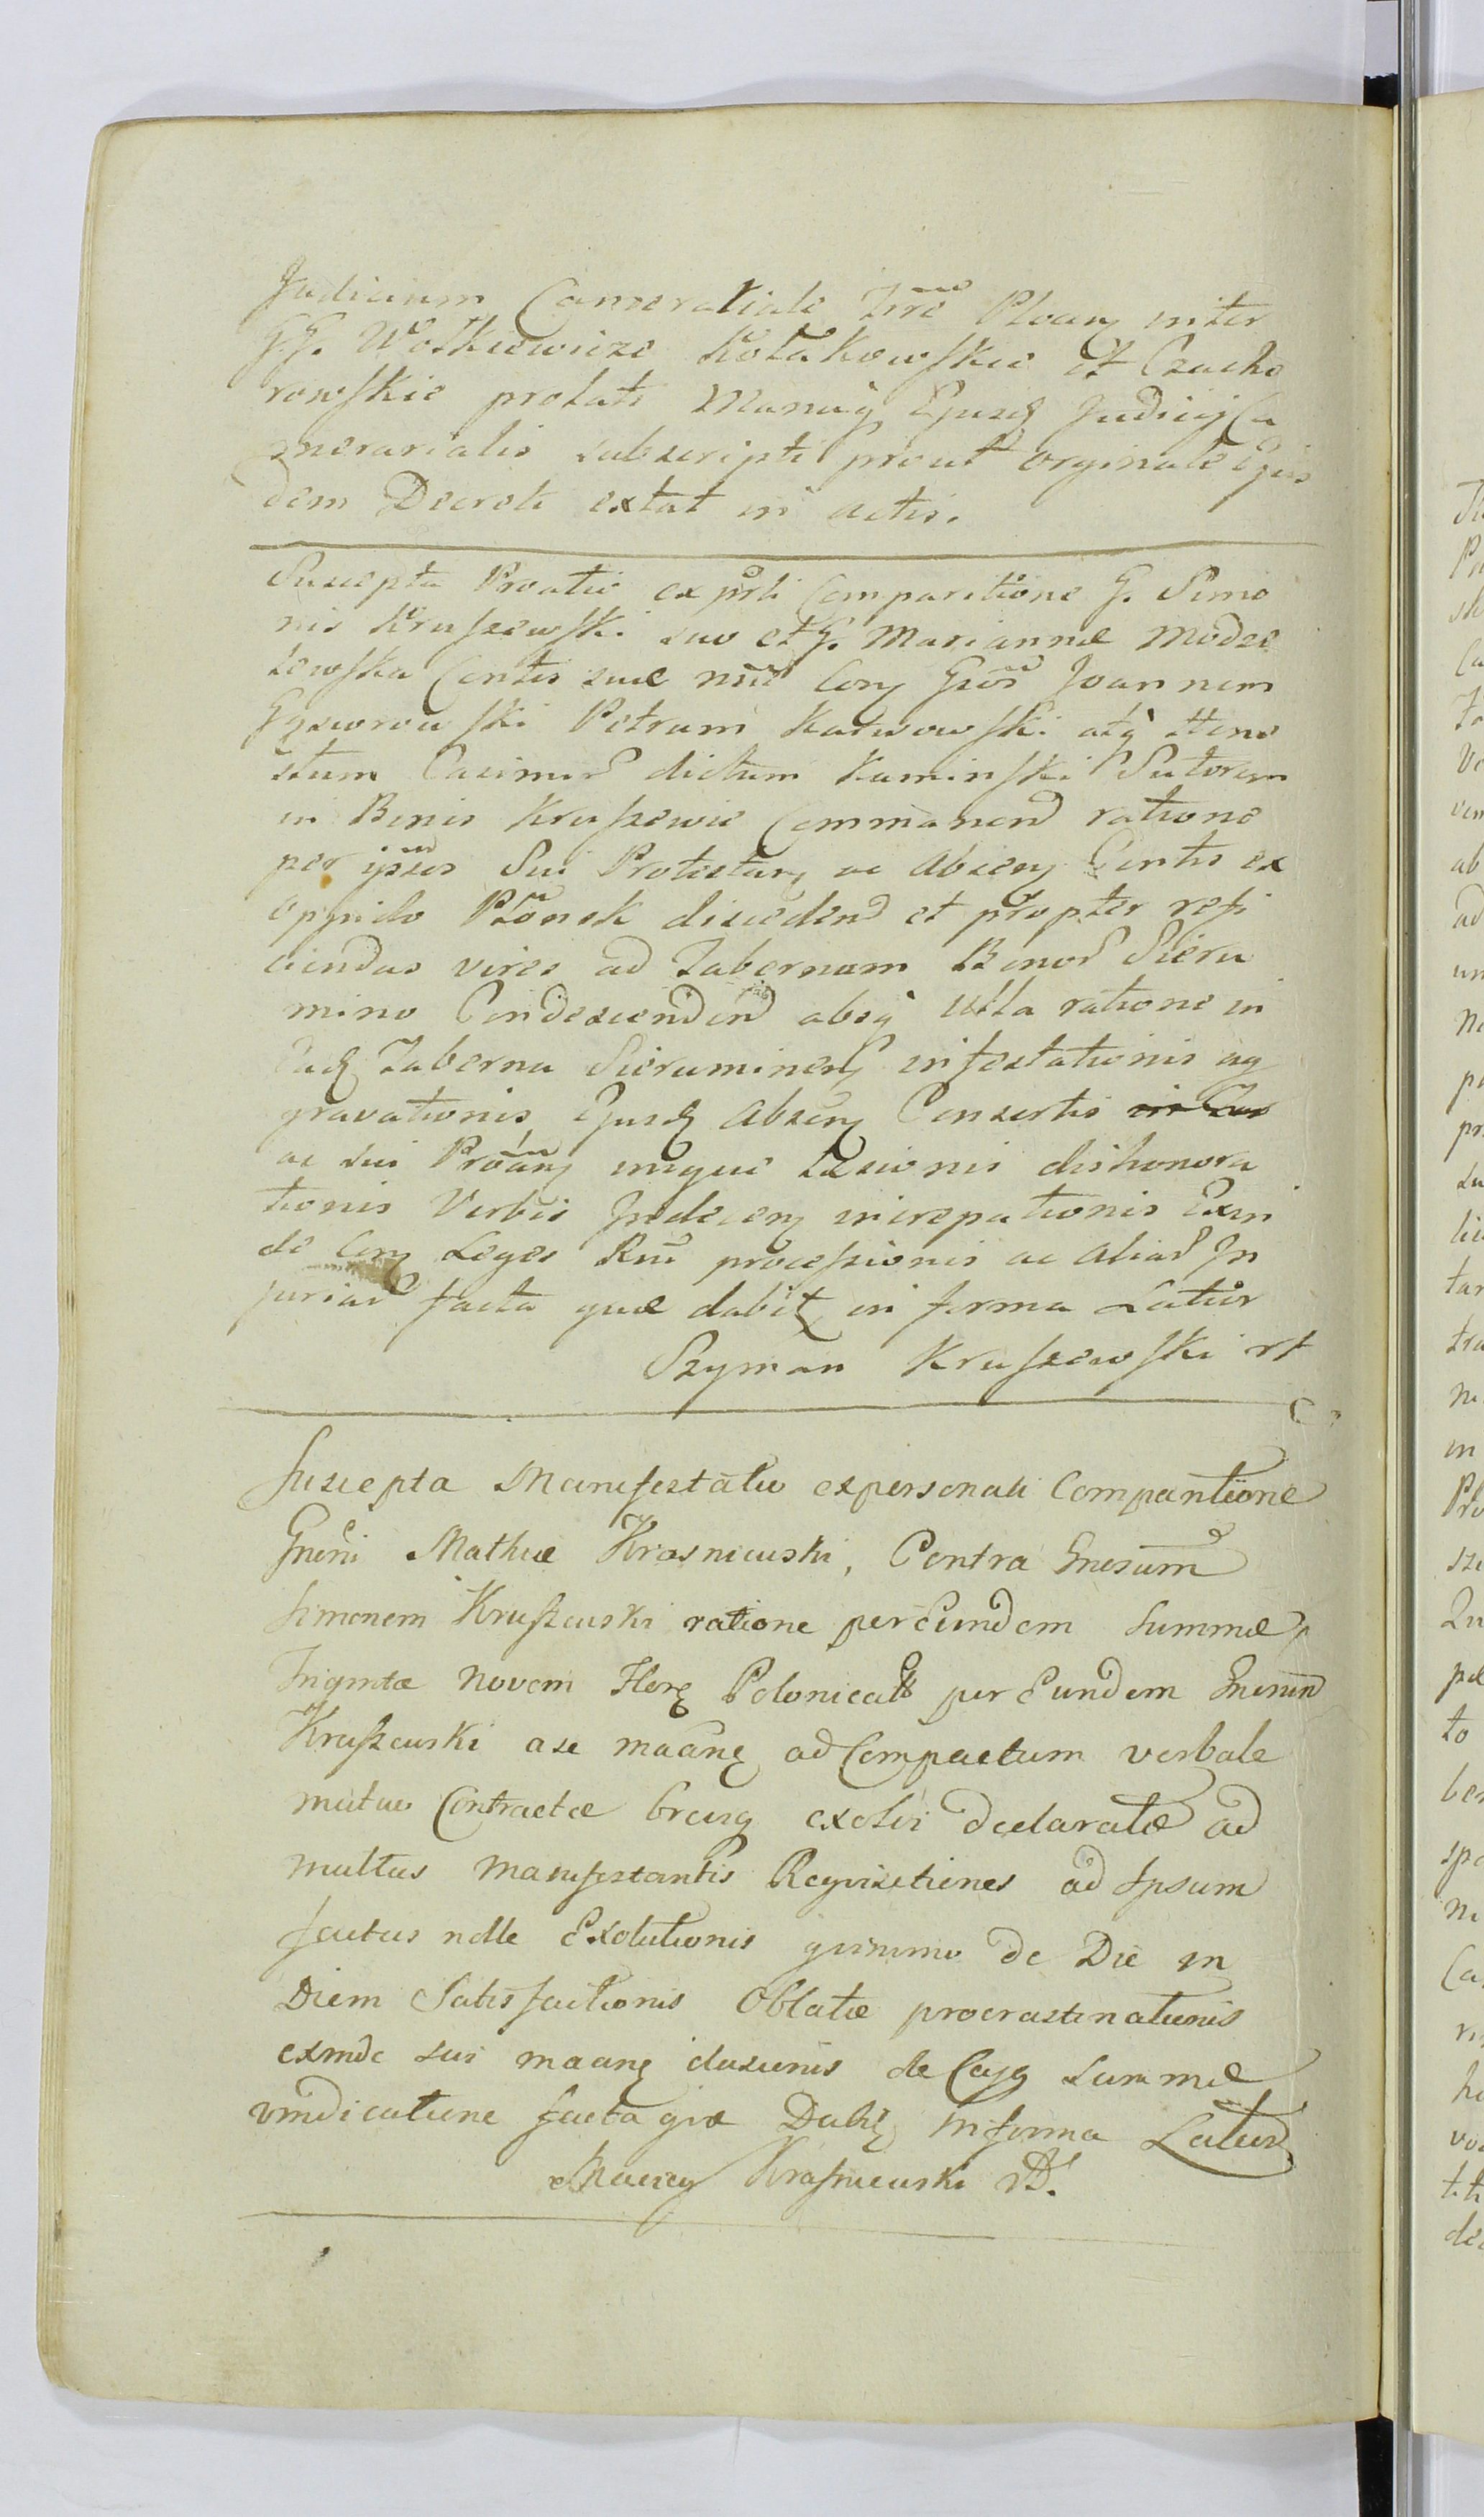 Judicium Cameratiale Trre Plocen inter
GG. Wołkiewicze Kołakowskie Et Czacho
rowskie prolati Manuq Ejusd Judicij Ca
merarialis subscripti prout orginale Ejus
dem Decreti extat in actis.
Suscepta Proatio ex prli Comparitione G. Simo
nis Kruszewski suo et G. Marianne Modze
lewska Contis suae nne Con Gsos Joannem
Gąsiorowski Petrum Karwowski atq Hone
stum Casimir dictum Kaminski Sutorem
in Bonis Kruszewie Commanend ratione
per ipsos Sui Protestan ac Absen Contis ex
Oppido Płonsk discedend et propter refi
ciendas vires ad Tabernam Bonor Sieru
mino Condescendend absq ulla ratione in
Ead Taberna Sieruminen infestationis ag
gravationis Ejusd Absen Consortis in
ac sui Proan inique Laesionis dishonora
tionis Verbis Indecen increpationis Exin
de Con Leges Rni processionis ac aliar In
juriar facta quae dabit in forma Latior
Szyman Kruszewski rt
Suscepta Manifestatio expersonali Comparitione
Gneri Mathiae Krasniewski, Contra Gnerum
Simonem Kruszewski ratione per Eundem Summae
Triginta Novem Flor Polonical per Eundem Gnerum
Kruszewski a se maane ad Compactum verbale
mutuo Contractae brevq exolvi declaratae ad
multas Manifestantis Requisitiones ad Ipsum
factas nolle Exolutionis quinimo de Die in
Diem Satisfactionis Oblatae procrastinationis
exinde sui maane elusionis de Cajq Summae
vindicatione facta qua Dabit In forma Latior
Maciey Krasniewski